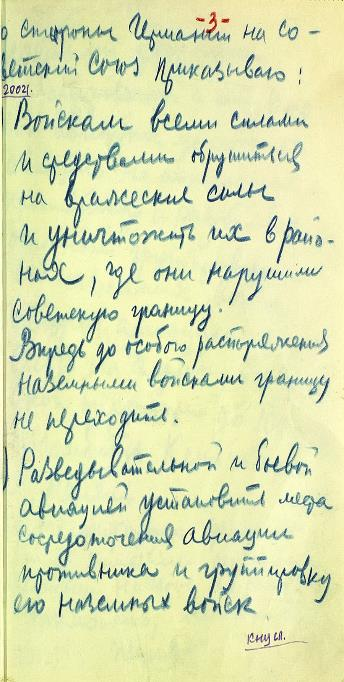 -3-
о стороны Германии на Со-
ветский Союз приказываю:
2002г.
Войскам всеми силами
и средствами обрушиться
на вражеские силы
и уничтожить их в райо-
нах, где они нарушили
советскую границу.
Впредь до особого распоряжения
наземными войсками границу
не переходить.
) Разведывательной и боевой
авиацией установить места
сосредоточения авиации
противника и группировку
его наземных войск